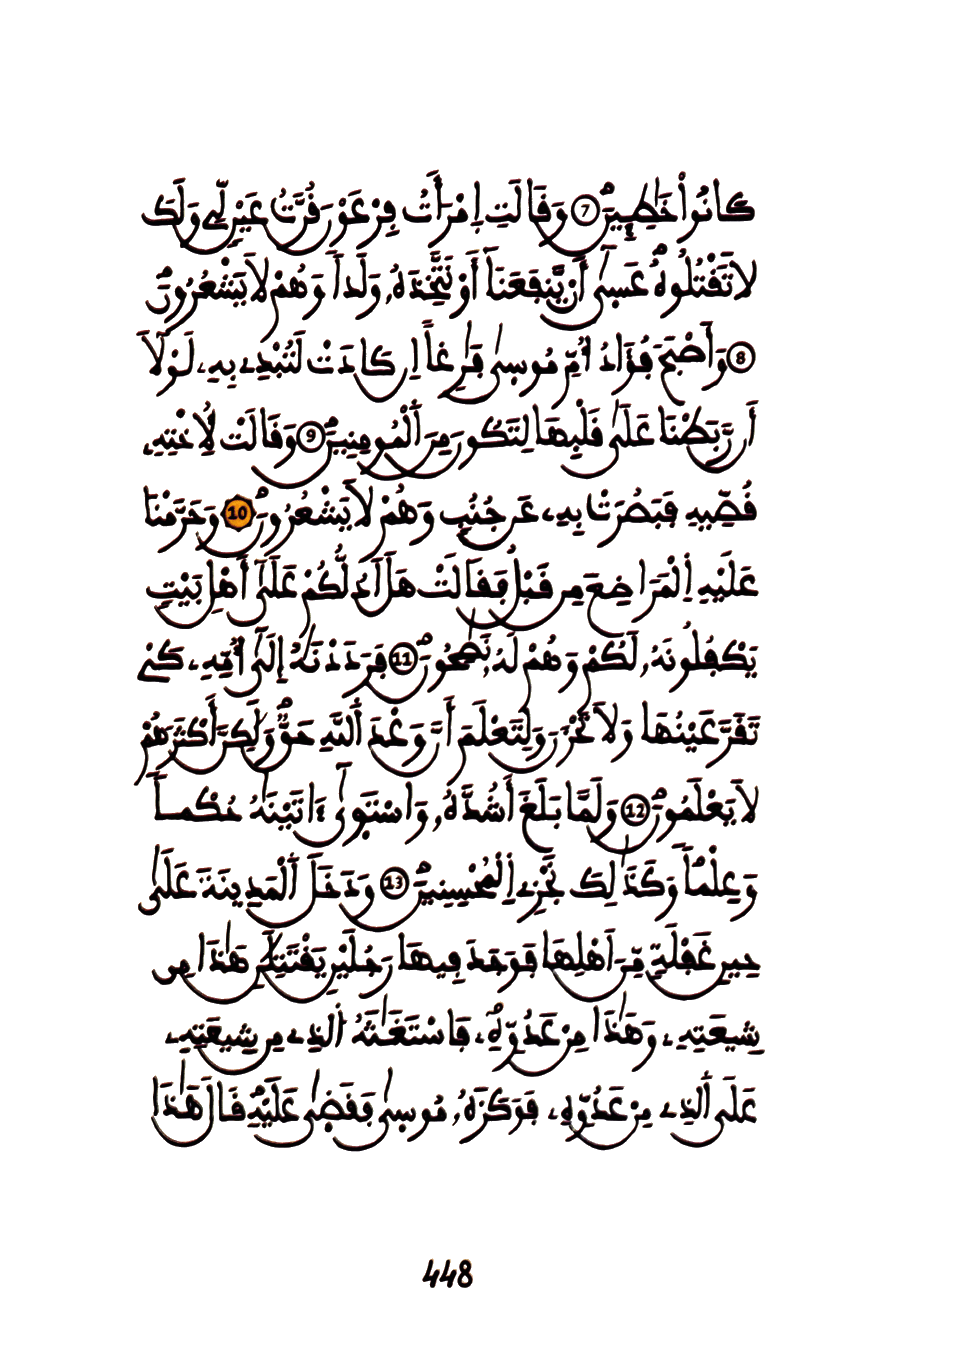 كَانُواْ خَٰطِـِٕينَ 7 وَقَالَتِ اِمْرَأَتُ فِرْعَوْنَ قُرَّتُ عَيْنٍ لِّے وَلَكَ
لَا تَقْتُلُوهُ عَسۭىٰٓ أَنْ يَّنفَعَنَآ أَوْ نَتَّخِذَهُۥ وَلَداٗ وَهُمْ لَا يَشْعُرُونَ
8 وَأَصْبَحَ فُؤَادُ أُمِّ مُوسۭىٰ فَٰرِغاً اِن كَادَتْ لَتُبْدِے بِهِۦ لَوْلَآ
أَن رَّبَطْنَا عَلَىٰ قَلْبِهَا لِتَكُونَ مِنَ ٱلْمُومِنِينَ 9 وَقَالَتْ لِأُخْتِهِۦ
قُصِّيهِ فَبَصُرَتْ بِهِۦ عَن جُنُبٖ وَهُمْ لَا يَشْعُرُونَ 10 وَحَرَّمْنَا
عَلَيْهِ اِ۬لْمَرَاضِعَ مِن قَبْلُ فَقَالَتْ هَلَ اَدُلُّكُمْ عَلَىٰٓ أَهْلِ بَيْتٖ
يَكْفُلُونَهُۥ لَكُمْ وَهُمْ لَهُۥ نَٰصِحُونَ 11 فَرَدَدْنَٰهُ إِلَىٰٓ أُمِّهِۦ كَےْ
تَقَرَّ عَيْنُهَا وَلَا تَحْزَنَ وَلِتَعْلَمَ أَنَّ وَعْدَ ٱللَّهِ حَقّٞ وَلَٰكِنَّ أَكْثَرَهُمْ
لَا يَعْلَمُونَ 12 وَلَمَّا بَلَغَ أَشُدَّهُۥ وَاسْتَوۭىٰٓ ءَاتَيْنَٰهُ حُكْماٗ
وَعِلْماٗ وَكَذَٰلِكَ نَجْزِے اِ۬لْمُحْسِنِينَ 13 وَدَخَلَ ٱلْمَدِينَةَ عَلَىٰ
حِينِ غَفْلَةٖ مِّنَ اَهْلِهَا فَوَجَدَ فِيهَا رَجُلَيْنِ يَقْتَتِلَٰنِ هَٰذَا مِن
شِيعَتِهِۦ وَهَٰذَا مِنْ عَدُوِّهِۦ فَاسْتَغَٰثَهُ ٱلذِے مِن شِيعَتِهِۦ
عَلَى ٱلذِے مِنْ عَدُوِّهِۦ فَوَكَزَهُۥ مُوسۭىٰ فَقَضۭىٰ عَلَيْهِ قَالَ هَٰذَا
448